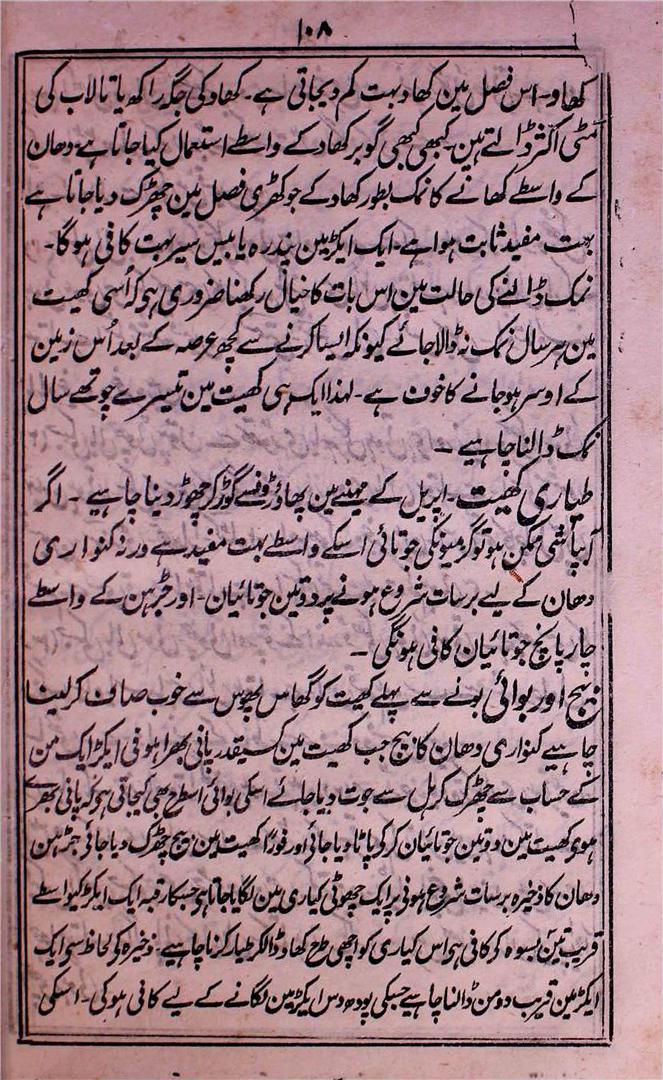 ۱۰۸
کھاد۔ اس فصل مین کھاد بہت کم دیجاتی ہے۔ کھاد کی جگہ راکھ یا تالاب کی
مٹی اکثر ڈالتے ہین کبھی کبھی گوبر کھاد کے واسطے استعمال کیا جاتا ہے۔ دھان
کے واسطے کھانے کا نمک بطور کھاد کے جو کھڑی فصل مین چھڑک دیا جاتا ہے
بہت مفید ثابت ہوا ہے۔ ایک ایکڑ مین پندرہ یا بیس سیر بہت کافی ہوگا۔
نمک ڈالنے کی حالت مین اس بات کا خیال رکھنا ضروری ہو کہ اُسی کھیت
مین ہر سال نمک نہ ڈالا جائے کیونکہ ایسا کرنے سے کچھ عرصہ کے بعد اُس زمین
کے اوسر ہو جانے کا خوف ہے۔ لہذا ایک ہی کھیت مین تیسرے چوتھے سال
نمک ڈالنا چاہیے ۔
طیاری کھیت۔ اپریل کے مہینے مین پھاوڑونسے گوڑ کر چھوڑ دینا چاہیے ۔ اگر
آبپاشی ممکن ہو تو گرمیونکی جوتائی اسکے واسطے بہت مفید ہے ورنہ کنواری
دھان کے لیے برسات شروع ہونے پر دو تین جوتائیان۔ اور جڑہن کے واسطے
چار پانچ جوتائیان کافی ہونگی ۔
بیج اور بوائی بونے سے پہلے کھیت کو گھاس پھوس سے خوب صاف کرلینا
چاہیے کنواری دھان کا بیج جب کھیت مین کسیقدر پانی بھرا ہو فی ایکڑ ایک من
کے حساب سے چھڑک کر ہل سے جوت دیا جائے اسکی بوائی اسطرح بھی کیجاتی ہو کہ پانی بھرے
ہوئے کھیت مین دو تین جوتائیان کرکر پاٹا دیا جائے اور فوراً کھیت مین بیج چھڑک دیا جائے جڑہن
دھان کا ذخیرہ برسات شروع ہونے پر ایک چھوٹی کیاری مین لگایا جاتا ہو جسکا رقبہ ایک ایکڑ کیواسطے
قریب تین بسوہ کے کافی ہو اس کیاری کو اچھی طرح کھاد ڈالکر طیار کرنا چاہیے۔ ذخیرہ کے لحاظ سے ایک
ایکڑ مین قریب دو من ڈالنا چاہیے جسکی پودھ دس ایکڑ مین لگانے کے لیے کافی ہوگی۔ اسکی